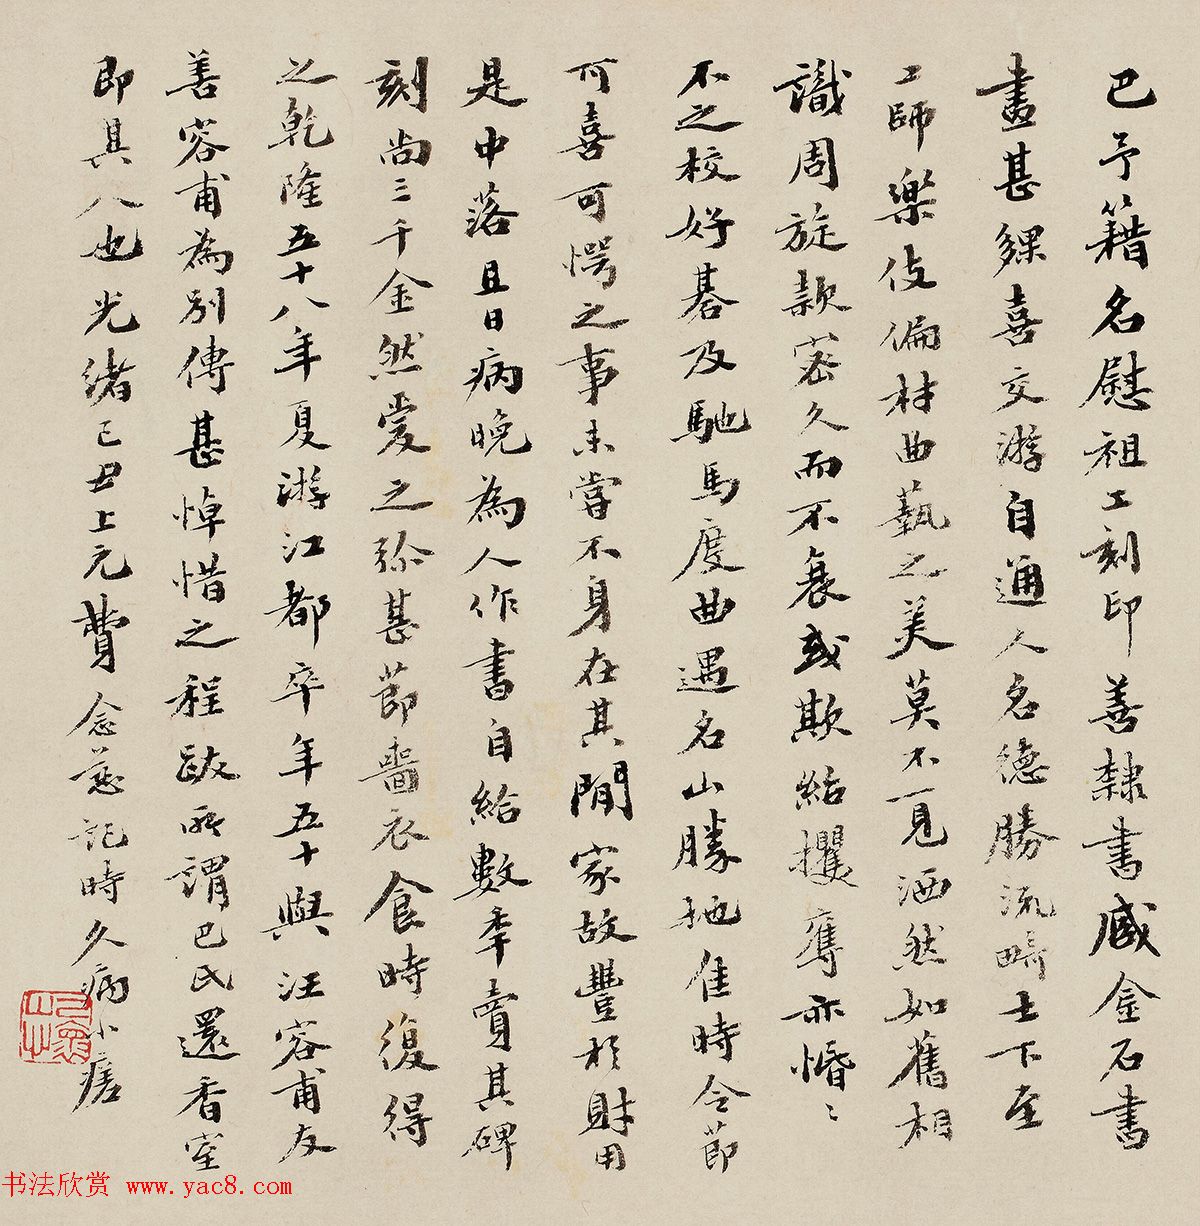 巴予籍名慰祖工刻印善隸書臧金石書
畫甚夥喜交游自通人名德勝流畸士下至
工師樂伎偏材曲藝之美莫不一見洒然如舊相
識周旋款密久而不衰或欺紿攫奪亦惛〻
不之校好碁及馳馬度曲遇名山勝地佳時令節
可喜可愕之事未嘗不身在其間家故豐於財用
是中落且日病晚為人作書自給數年賣其碑
刻尚三千金然愛之弥甚節嗇衣食時復得
之乾隆五十八年夏游江都卒年五十與汪容甫友
善容甫為別傳甚悼惜之程跋所謂巴氏還香室
即其人也光緒己丑上元費念慈記時久病小痊
书法欣赏 www.yac8.com